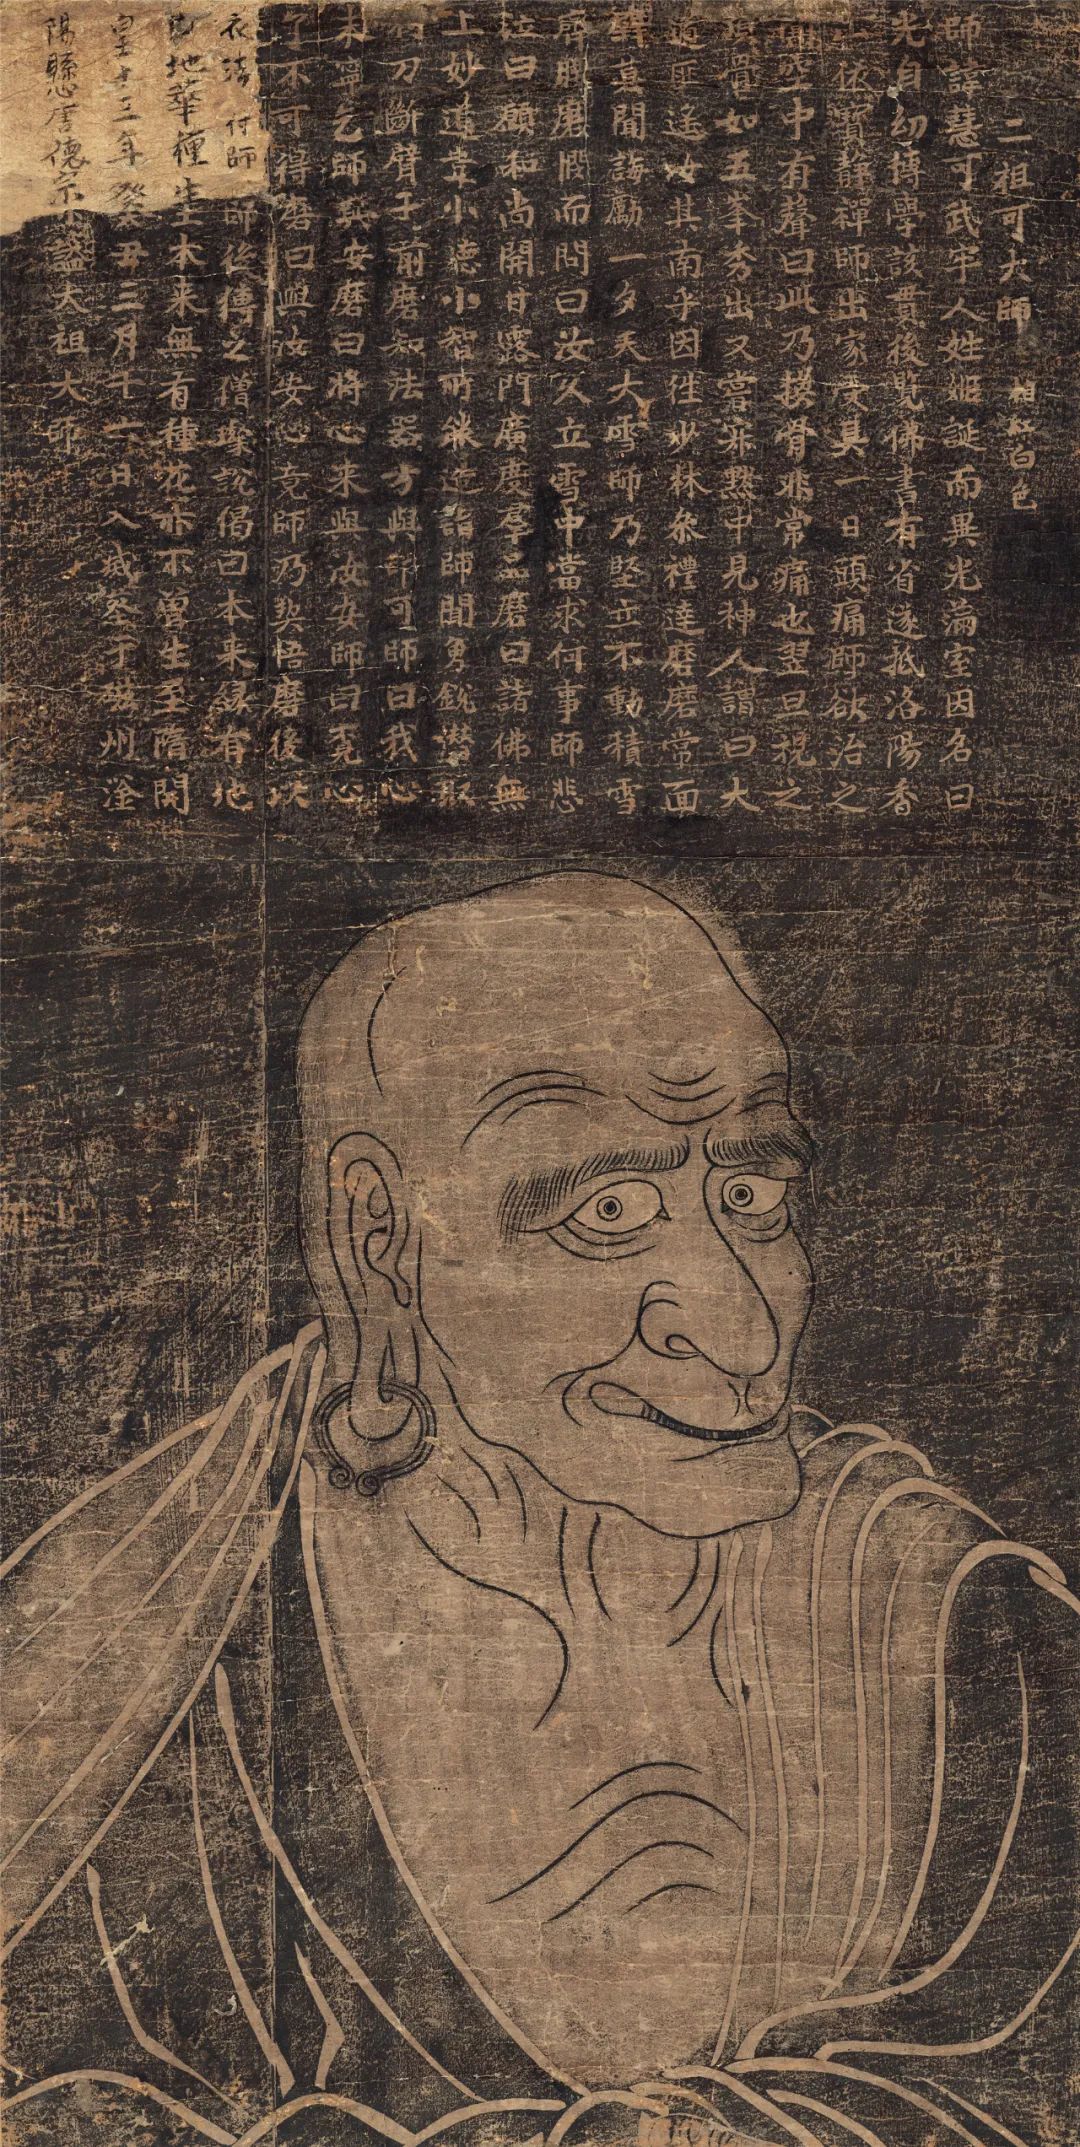 二祖可大師 相紅白色
師諱慧可武牢人姓姬誕而異光滿室因名曰
光自幼博學該貫後覽佛書有省遂抵洛陽香
依寶靜禪師出家受具一日頭痛師欲治之
聞空中有聲曰此乃換骨非常痛也翌旦視之
頂骨如五峯秀出又當默中見神人謂曰大
道匪遙汝其南乎因往少林叅禮達磨磨常面
壁莫聞誨勵一夕天大雪師乃堅立不動積雪
齊腰磨憫而問曰汝久立雪中當求何事師悲
泣曰願和尚開甘露門廣度羣品磨曰諸佛無
上妙道豈小德小智所師聞勇銳潛取
利刀斷臂于前磨知法器方與可師曰我心
未寧乞師與安磨曰將心來與汝安師曰覓心
了不可得磨曰與汝安心竟師乃契悟磨後以
衣法付師師後傳之僧璨說偈曰本來緣有地
因地華種生本來無有種花亦不曾生至隋開
皇十三年癸丑三月十六日入滅塟于磁州滏
陽縣唐德宗謚大祖大師